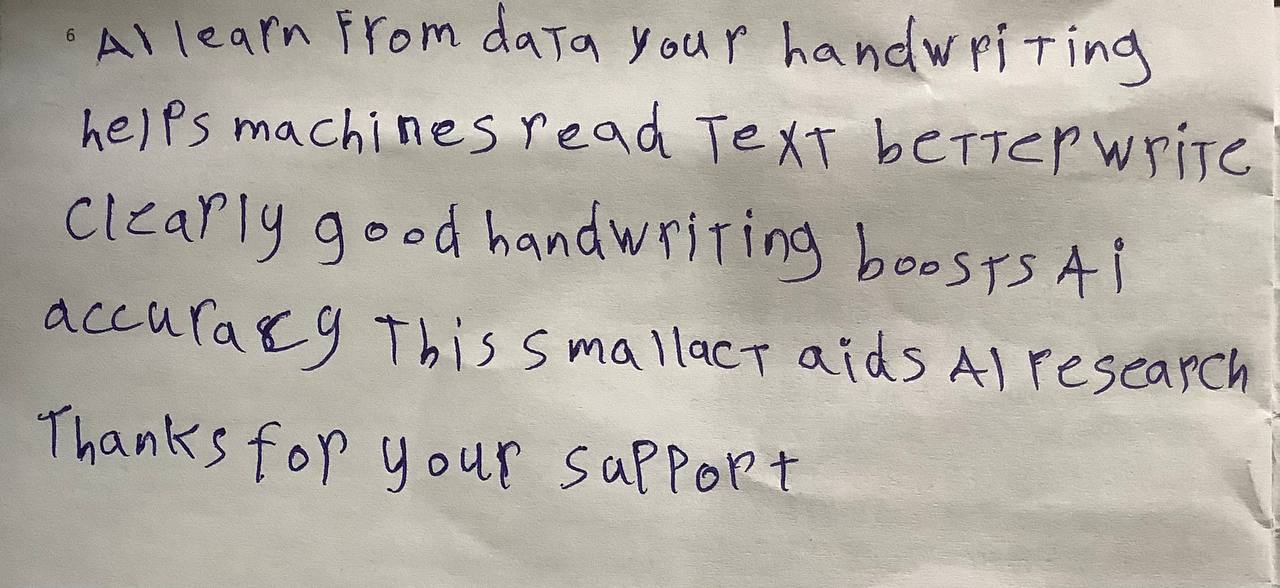 6 AI learn From data your handwriting
helps machines read Text better write
Clearly good handwriting boosts Ai
accuracy This small act aids AI research
Thanks for your sapport